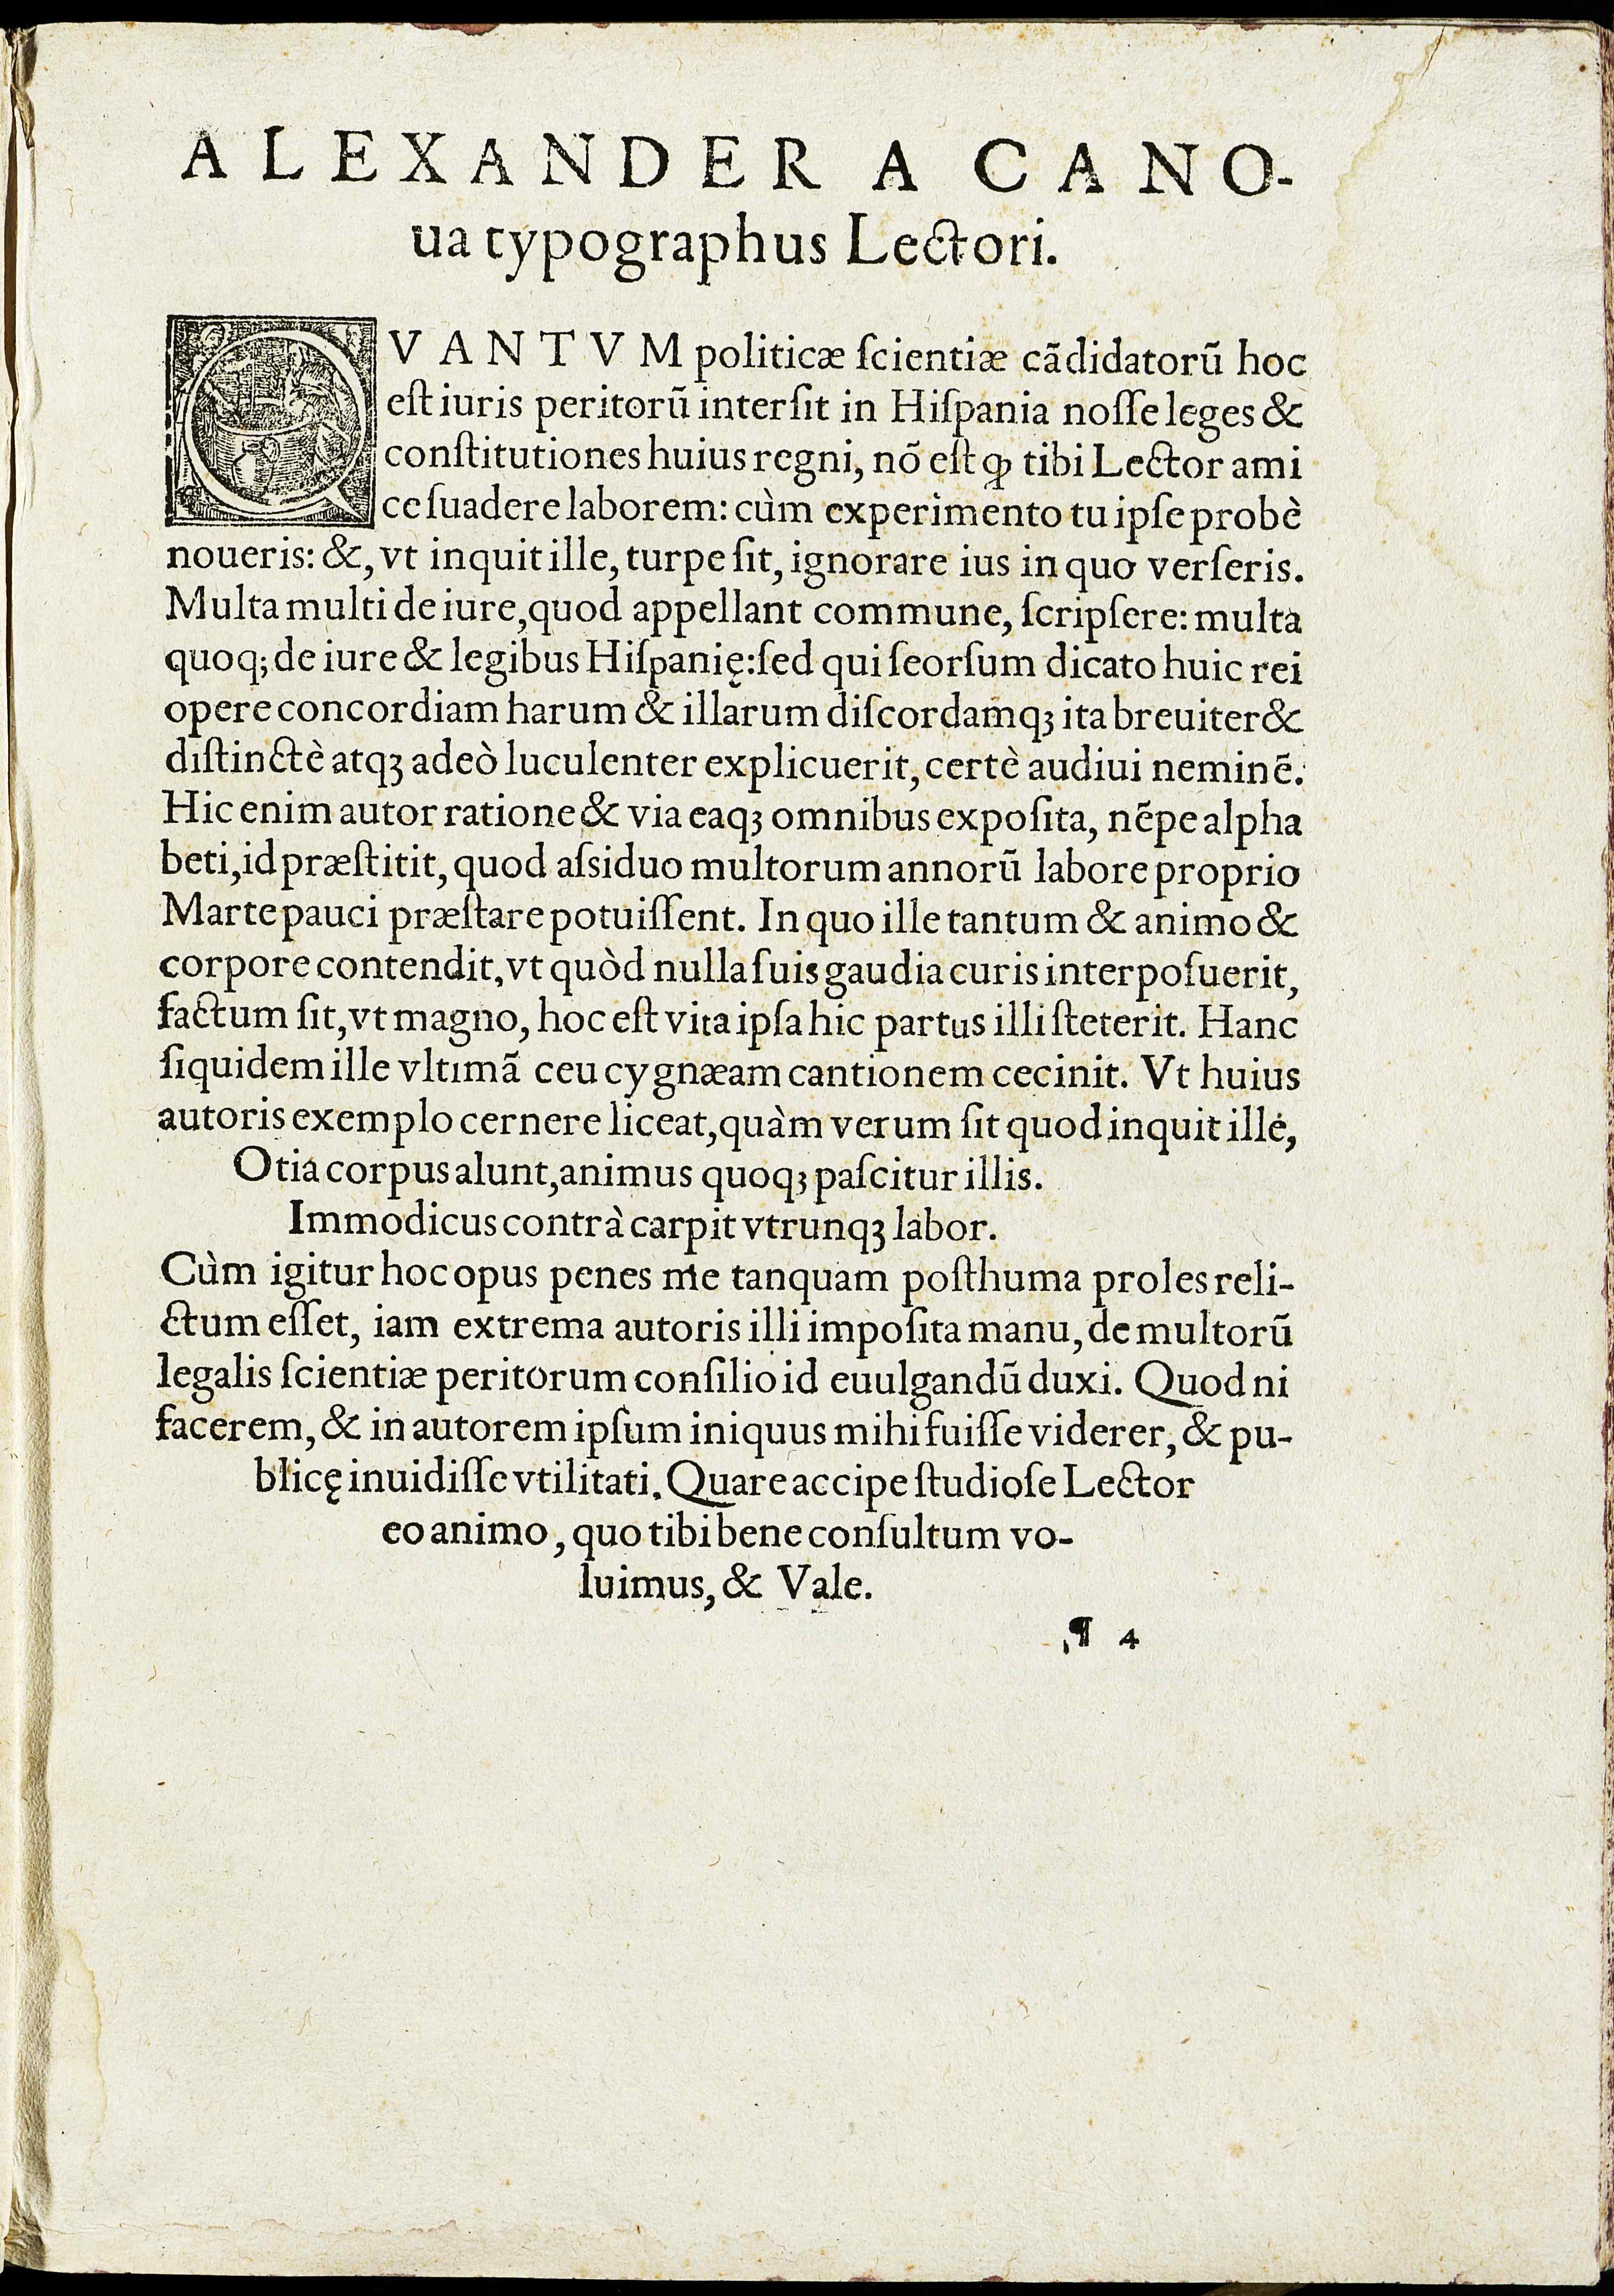 ALEXANDER A CANO-
ua typographus Lectori.
QVANTVM politicæ ſcientiæ cãdidatorũ hoc
eſt iuris peritorũ interſit in Hiſpania noſſe leges &
conſtitutiones huius regni, nõ eſt ꝙ tibi Lector ami
ce ſuadere laborem: cùm experimento tu ipſe probè
noueris: &, vt inquit ille, turpe ſit, ignorare ius in quo verſeris.
Multa multi de iure, quod appellant commune, ſcripſere: multa
quoq; de iure & legibus Hiſpanię: ſed qui ſeorſum dicato huic rei
opere concordiam harum & illarum diſcordamqꝫ ita breuiter &
diſtinctè atqꝫ adeò luculenter explicuerit, certè audiui neminẽ.
Hic enim autor ratione & via eaqꝫ omnibus expoſita, nẽpe alpha
beti, id præſtitit, quod aſsiduo multorum annorũ labore proprio
Marte pauci præſtare potuiſſent. In quo ille tantum & animo &
corpore contendit, vt quòd nulla ſuis gaudia curis interpoſuerit,
factum ſit, vt magno, hoc eſt vita ipſa hic partus illi ſteterit. Hanc
ſiquidem ille vltimã ceu cygnæam cantionem cecinit. Vt huius
autoris exemplo cernere liceat, quàm verum ſit quod inquit ille,
Otia corpus alunt, animus quoqꝫ paſcitur illis.
Immodicus contrà carpit vtrunqꝫ labor.
Cùm igitur hoc opus penes me tanquam poſthuma proles reli-
ctum eſſet, iam extrema autoris illi impoſita manu, de multorũ
legalis ſcientiæ peritorum conſilio id euulgandũ duxi. Quod ni
facerem, & in autorem ipſum iniquus mihi fuiſſe viderer, & pu-
blicę inuidiſſe vtilitati. Quare accipe ſtudioſe Lector
eo animo, quo tibi bene conſultum vo-
luimus, & Vale.
¶ 4